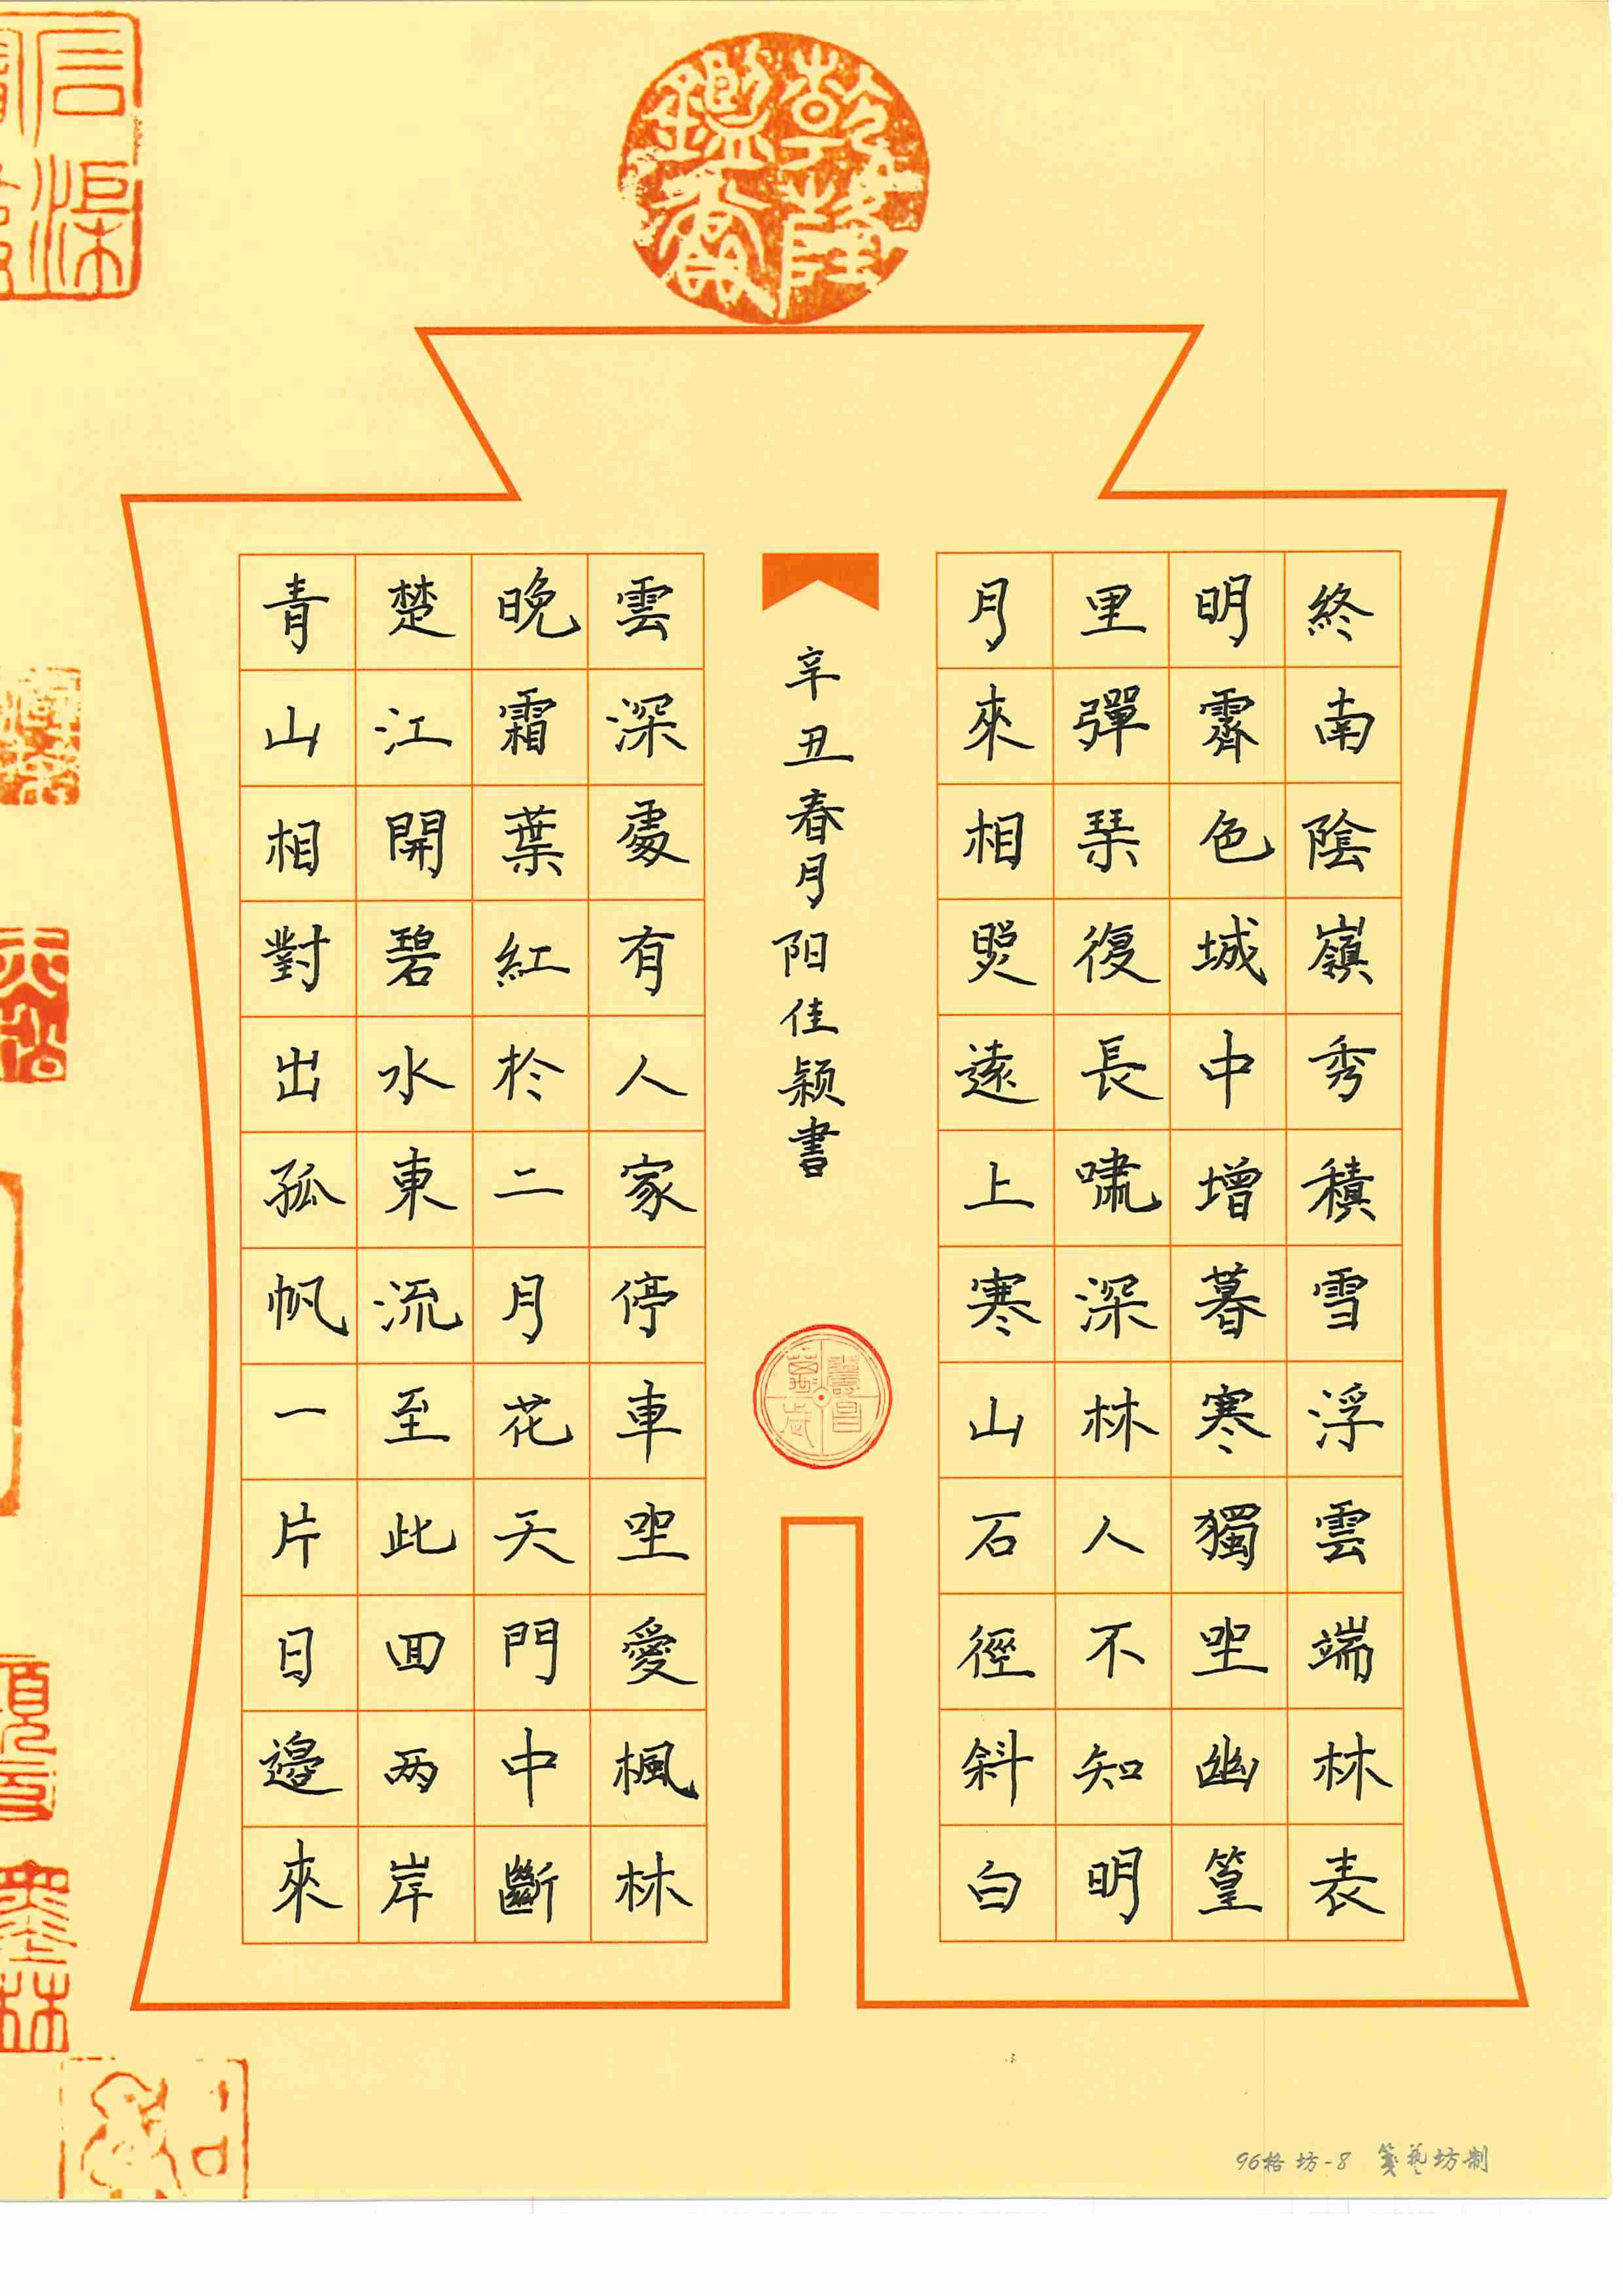 乾隆
鑑賞
終南陰嶺秀積雪浮雲端林表
明霽色城中增暮寒獨坐幽篁
里彈琴復長嘯深林人不知明
月來相照遠上寒山石徑斜白
辛丑春月阳佳颖書
雲深處有人家停車坐愛楓林
晚霜葉紅於二月花天門中斷
楚江開碧水東流至此回两岸
青山相對出孤帆一片日邊來
96格 坊-8 箋藝坊制